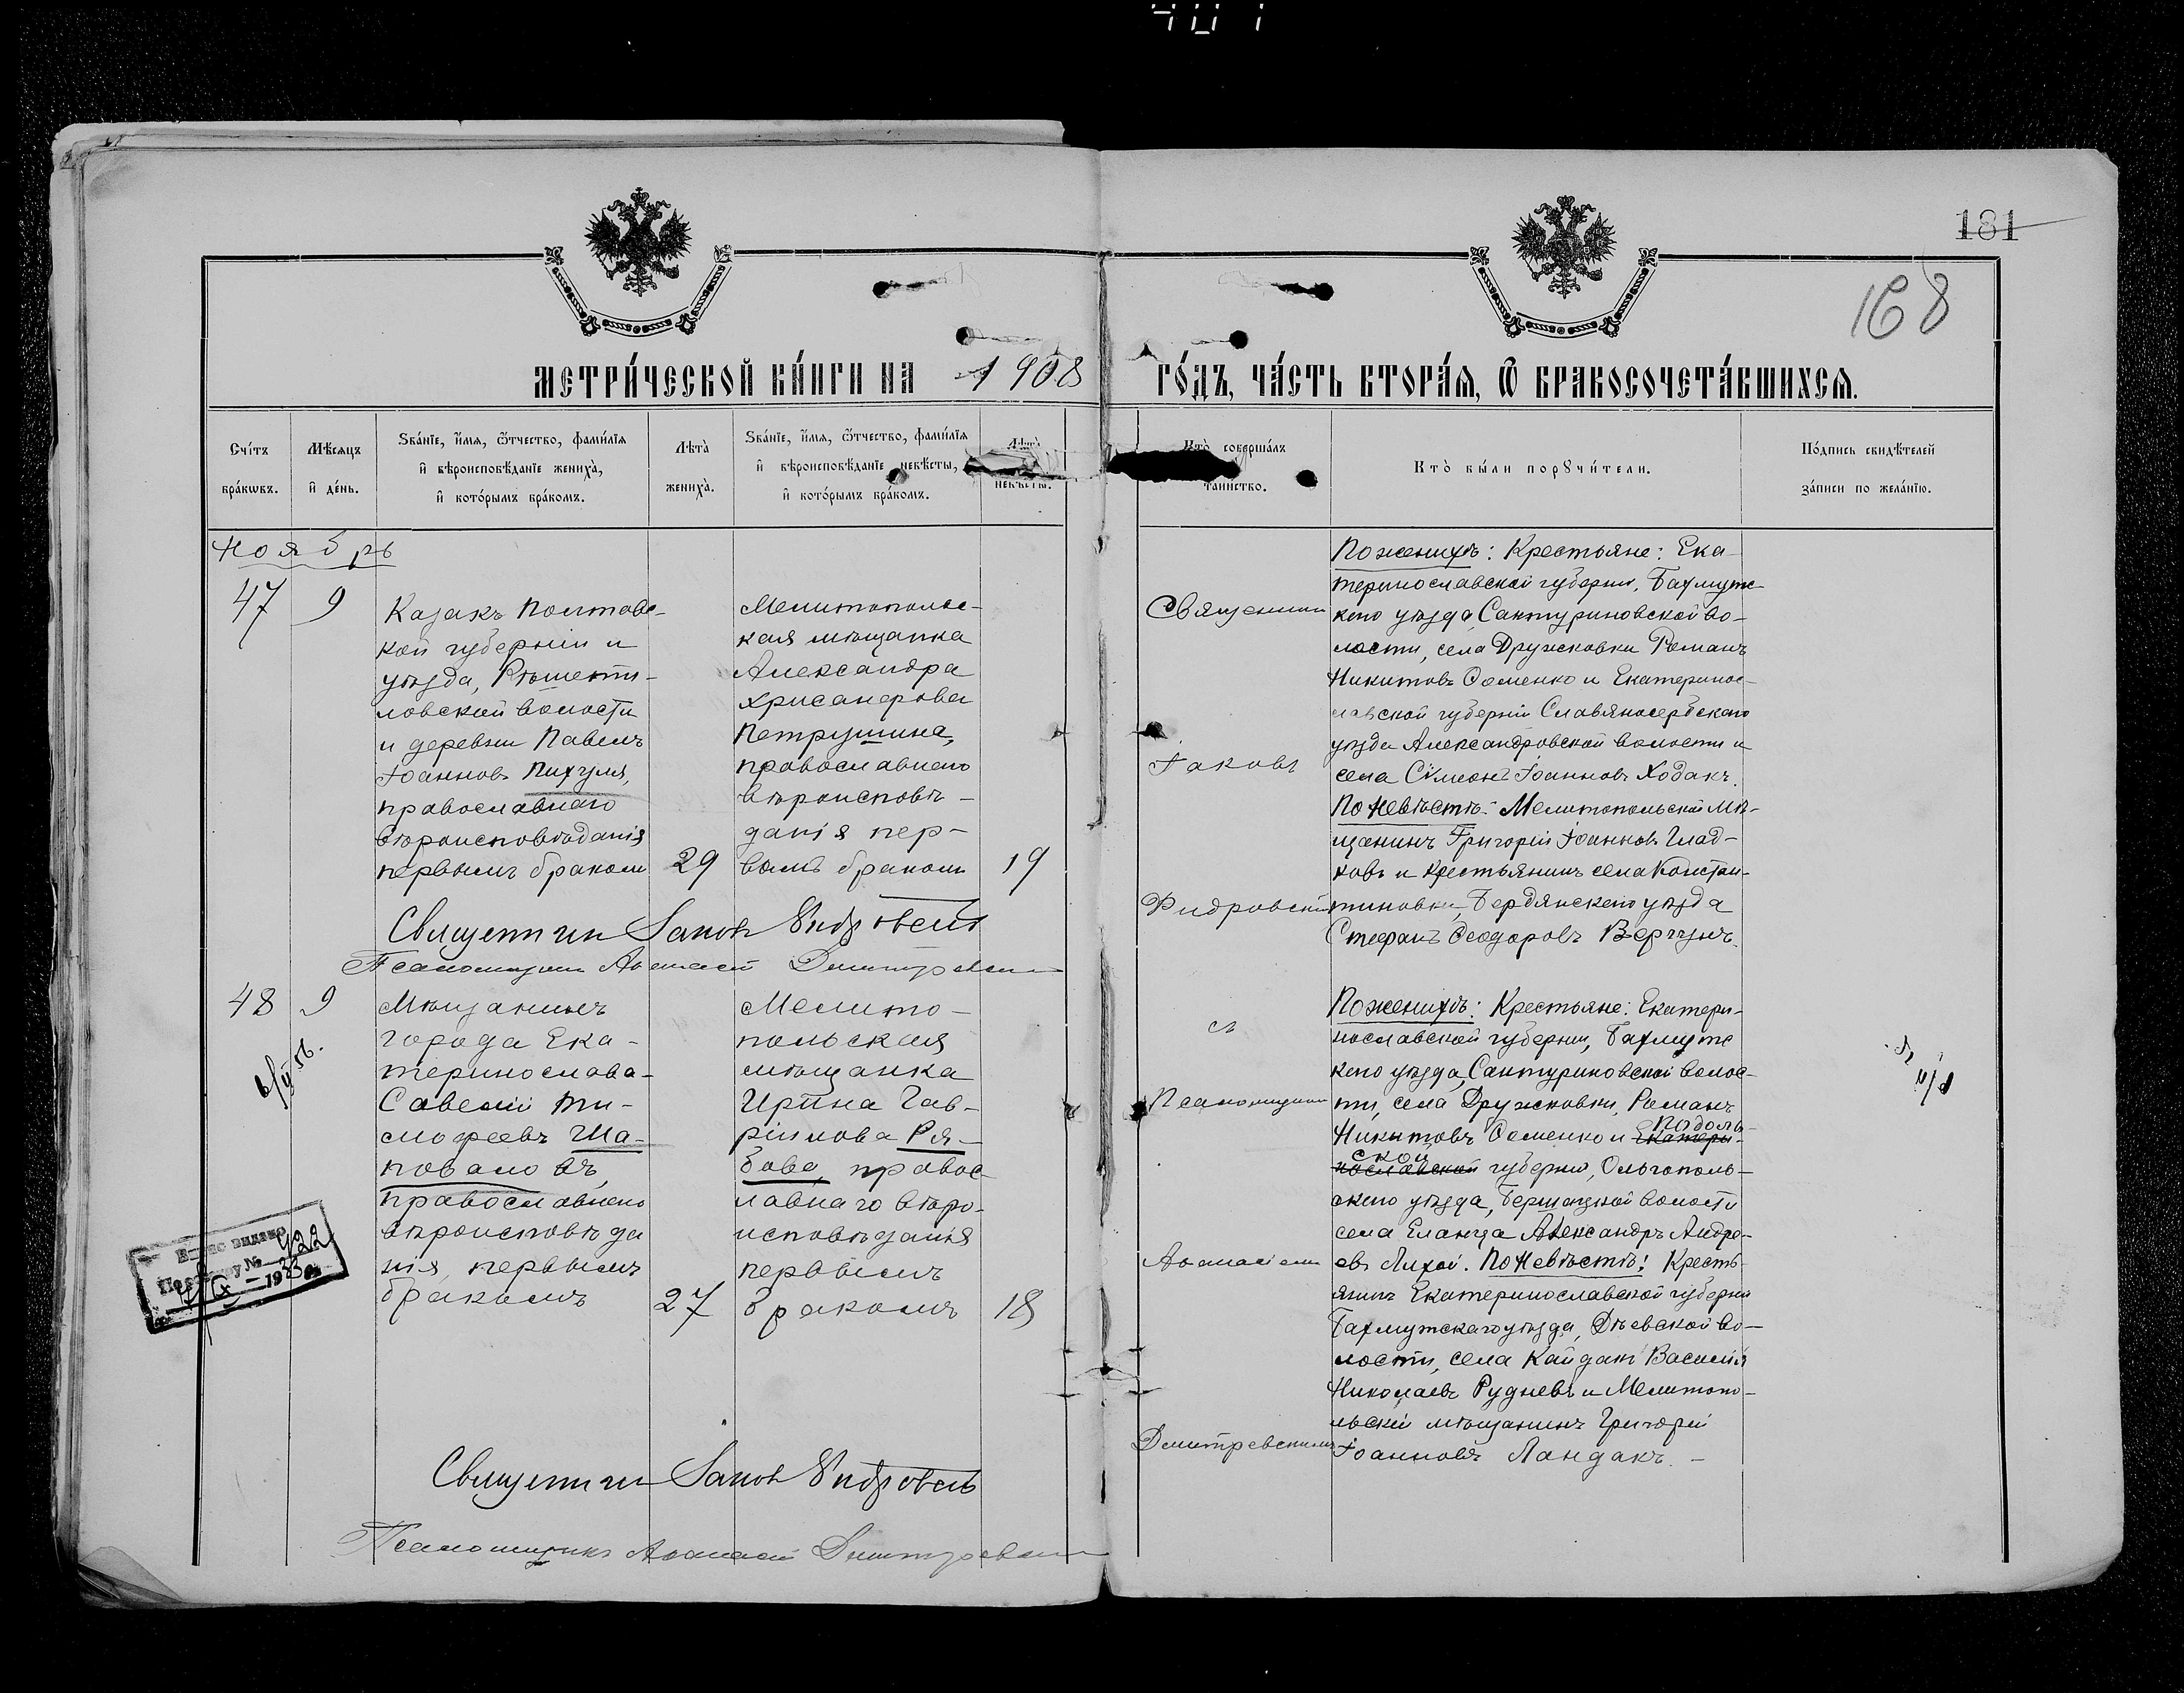 181
168
МЕТРИ́ЧЕСКОЙ КНИ́ГИ НА 1908 ГО́ДЪ, ЧА́СТЬ ВТОРА́Ѧ, Ѽ БРАКОСОЧЕТА́ВШИХСѦ.
Сче́тъ бра́кѡвъ.
Мѣ́сѧцъ и҆ де́нь.
Ѕва́нїе, и҆́мѧ, ѻ҆́тчество, фами́лїѧ
и҆ вѣроисповѣ́данїе женихà,
и҆ кото́рымъ бра́комъ.
Лѣ́та̀
женихà.
Ѕва́нїе, и҆́мѧ, ѻ҆́тчество, фами́лїѧ
и҆ вѣроисповѣ́данїе невѣ́сты,
и҆ кото́рымъ бра́комъ.
Лѣта̀
невѣ́сты.
Кто̀ соверша́лъ
таинство.
Кто̀ бы́ли порꙋчи́тели.
По́дпись свидѣ́телей
за́писи по жела́нїю.
Ноябрь
47
9
Казакъ Полтавс-
кой губерніи и
уѣзда, Рѣшети-
ловской волости
и деревни Павелъ
Іоанновъ Пихуля,
православнаго
вѣроисповѣданія
первымъ бракомъ
29
Мелитопольс-
кая мѣщанка
Александра
Хрисанфова
Петрушина,
православнаго
вѣроисповѣ-
данія пер-
вымъ бракомъ
19
Священник
Іаковъ
Фидровскій
По женихѣ: Крестьяне: Ека-
теринославской губерніи, Бахмутс-
каго уѣзда, Сантуриновской во-
лости, села Дружковки Романъ
Никитовъ Соменко и Екатеринос-
лавской губерніи Славяносербскаго
уѣзда Александровской волости и
села Сѵмеонъ Іоанновъ Ходакъ.
По невѣстѣ: Мелитопольскій мѣ-
щанинъ Григорій Іоанновъ Глад-
ковъ и крестьянинъ села Констан-
тиновки, Бердянскаго уѣзда
Стефанъ Ѳеодоровъ Вергунъ.
Священник Іаков Фидровскій
Псаломщик Аѳанасій Димитревскій
48
9
Мѣщанинъ
города Ека-
теринослава-
Савелій Ти-
моѳеевъ Ша-
поваловъ,
православнаго
вѣроисповѣда
нія, первымъ
бракомъ
27
Мелито-
польская
мѣщанка
Ирина Гав-
риилова Ря-
бова, правос-
лавнаго вѣро-
исповѣданія
первымъ
бракомъ
18
съ
Псаломщиком
Аѳанасіем
Димитревскимъ
По женихѣ: Крестьяне: Екатери-
нославской губерніи, Бахмутс
каго уѣзда, Сантуриновской волос-
ти, села Дружковки, Романъ
Никитовъ Соменко и Екатери- Подоль-
нославской ской губерніи, Ольгополь-
скаго уѣзда, Бершадской волости
села Еланца Александръ Андре-
евъ Лихой. По невѣстѣ: Кресть-
янинъ Екатеринославской губерніи
Бахмутскаго уѣзда, Дѣевской во-
лости, села Кайдакъ Василій
Николаевъ Рудневъ и Мелитопо-
льскій мѣщанинъ Григорій
Іоанновъ Ландакъ. -
Священник Іаков Фидровскій
Псаломщикъ Аѳанасій Димитревскій